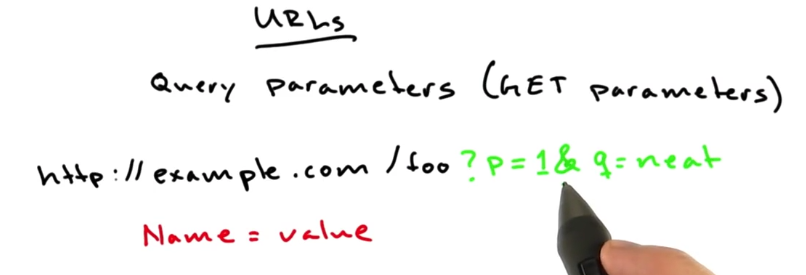 URLs
Query parameters (GET parameters)
http://example.com/foo?p=1&q=neat
Name = value